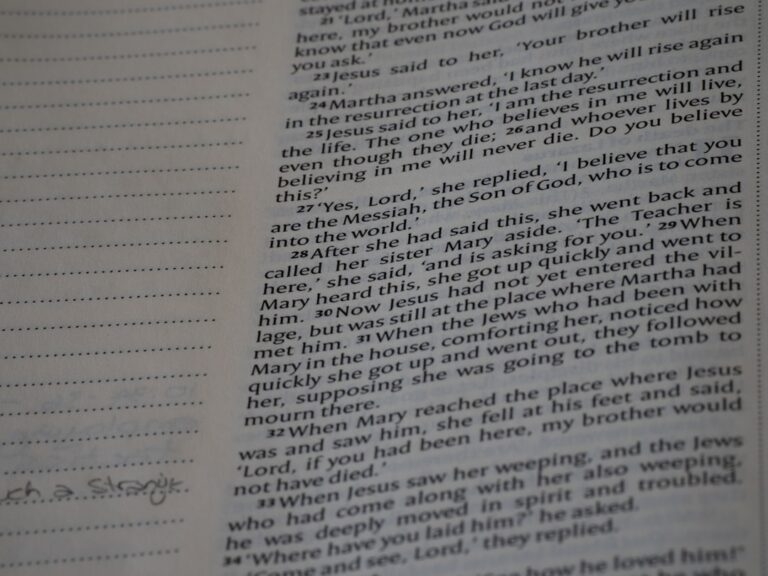 stayed at home.
21 'Lord,' Martha said
here, my brother would not
know that even now God will give you
you ask.'
23 Jesus said to her, 'Your brother will rise
again.'
24 Martha answered, 'I know he will rise again
in the resurrection at the last day.'
25 Jesus said to her, 'I am the resurrection and
the life. The one who believes in me will live,
even though they die; 26 and whoever lives by
believing in me will never die. Do you believe
this?'
27 'Yes, Lord,' she replied, 'I believe that you
are the Messiah, the Son of God, who is to come
into the world.'
28 After she had said this, she went back and
called her sister Mary aside. 'The Teacher is
here,' she said, 'and is asking for you.' 29 When
Mary heard this, she got up quickly and went to
him. 30 Now Jesus had not yet entered the vil-
lage, but was still at the place where Martha had
met him. 31 When the Jews who had been with
Mary in the house, comforting her, noticed how
quickly she got up and went out, they followed
her, supposing she was going to the tomb to
mourn there.
32 When Mary reached the place where Jesus
was and saw him, she fell at his feet and said,
'Lord, if you had been here, my brother would
not have died.'
33 When Jesus saw her weeping, and the Jews
who had come along with her also weeping,
he was deeply moved in spirit and troubled.
34 'Where have you laid him?' he asked.
'Come and see, Lord,' they replied.
how he loved him!'
who
such a strange